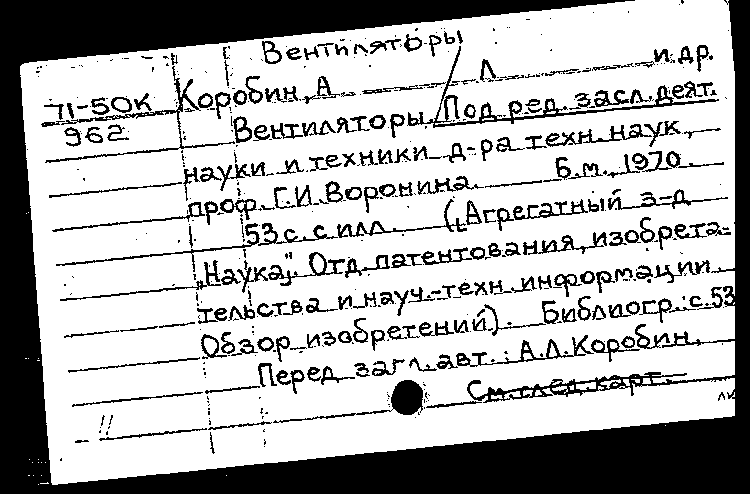 Вентиляторы
71-50К Коробин, А Л и др.
962 Вентиляторы. / Под ред. засл. деят.
науки и техники д-ра техн. наук,
проф. Г.И. Воронина. Б.м., 1970.
53 с. с илл. („Агрегатный з-д
„Наука". Отд. патентования, изобрета-
тельства и науч.-техн. информации.
Обзор изобретений). Библиогр.: с. 53
Перед загл. авт.: А.Л. Коробин.
См. след. карт.